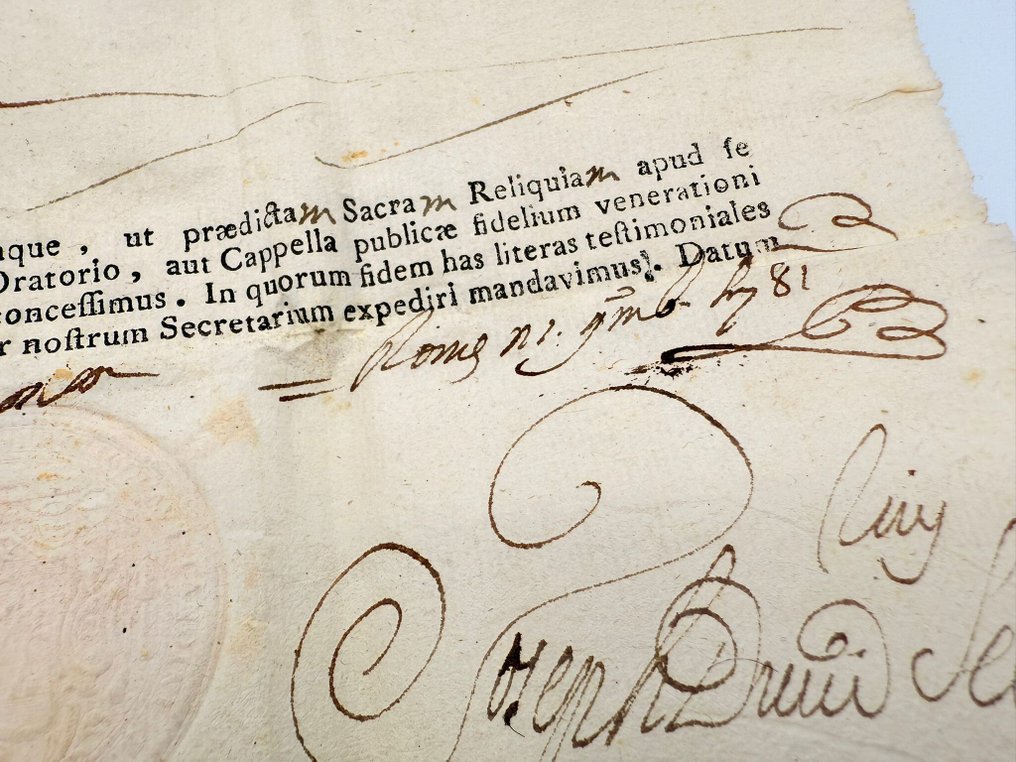 nque, ut prædictam Sacram Reliquiam apud ſe
Oratorio, aut Cappella publicæ fidelium venerationi
conceſſimus. In quorum fidem has literas teſtimoniales
r noſtrum Secretarium expediri mandavimus. Datum
Rome 81
Joseph